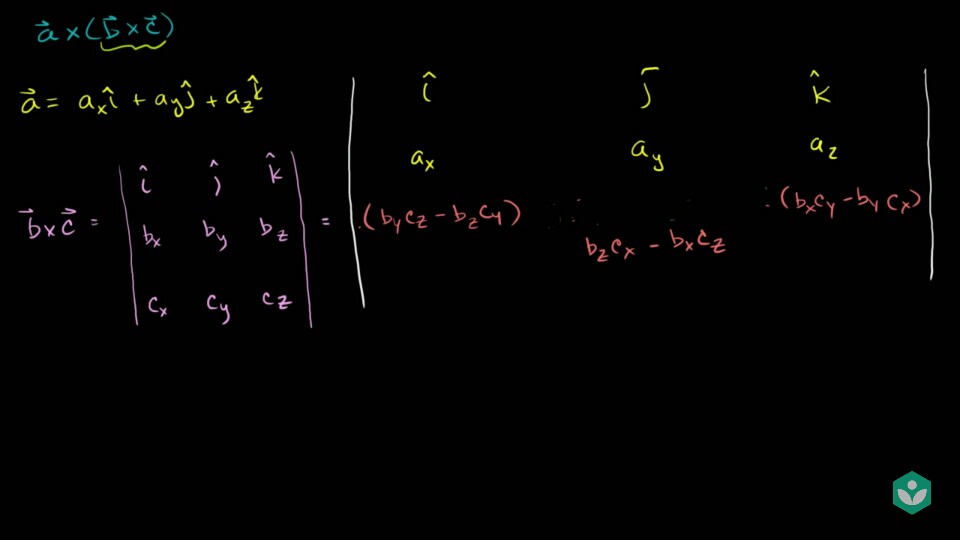 a⃗ × (b⃗ × c⃗)
a⃗ = aₓî + a_yĵ + a_z k̂
b⃗ × c⃗ =
î ĵ k̂
bₓ b_y b_z
cₓ c_y c_z
=
î j̄ k̂
aₓ a_y a_z
(b_y c_z - b_z c_y) b_z cₓ - bₓ c_z (bₓ c_y - b_y cₓ)